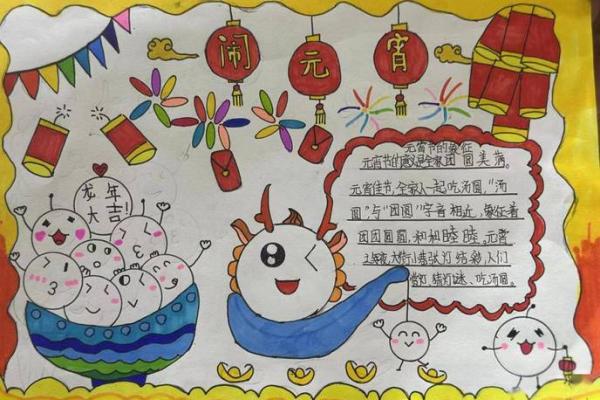 闹元宵
龙年
大吉!
元宵节的象征
元宵节的意义是全家团圆美满。
元宵佳节,全家人一起吃汤圆,“汤
圆”与“团圆”字音相近,象征着
团团圆圆,和和睦睦,元宵
之夜,大街小巷张灯结彩,人们
赏灯,猜灯谜、吃汤圆。